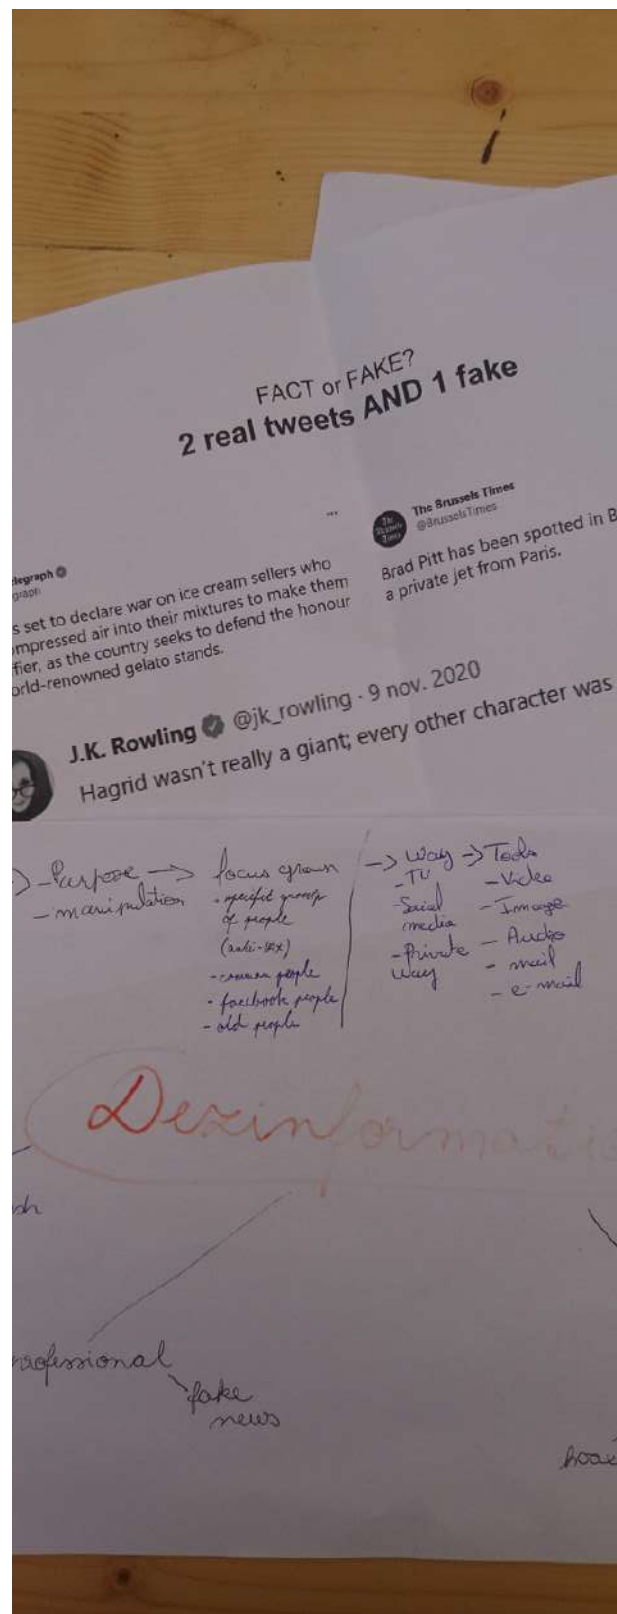 FACT or FAKE?
2 real tweets AND 1 fake
...
legraph
graph
s set to declare war on ice cream sellers who
ompressed air into their mixtures to make them
fier, as the country seeks to defend the honour
orld-renowned gelato stands.
The Brussels Times
@BrusselsTimes
The
Brussels
Times
Brad Pitt has been spotted in B
a private jet from Paris.
J.K. Rowling @jk_rowling · 9 nov. 2020
Hagrid wasn't really a giant; every other character was
-> - Purpose ->
- manipulation
focus group
- specific group
of people
(anti-vax)
- common people
- facebook people
- old people
-> Way
- TV
- Social
media
- Private
way
-> Tools
- Video
- Image
- Audio
- mail
- e-mail
Dezinformatio
professional
fake
news
hoax